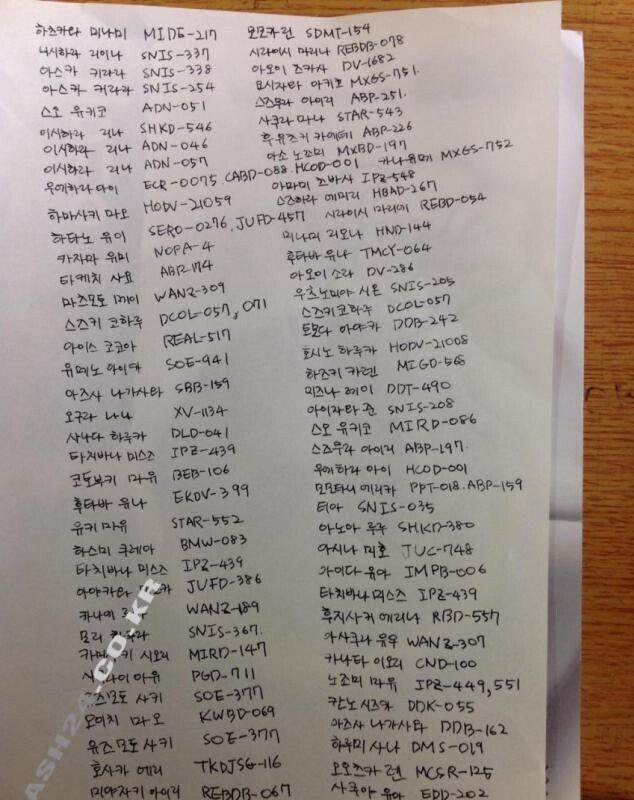 하즈카타 미나미 MIDE-217
니시하라 리이나 SNIS-337
아스카 키라라 SNIS-338
아스카 키라라 SNIS-254
스오 유키코 ADN-051
이시하라 리나 SHKD-546
이시하라 리나 ADN-046
이시하라 리나 ADN-057
우에하라 아이 ECR-0075, CABD-088. HCOD-001 카나 유메 MXGS-752
하마사키 마오 HODV-21059
하타노 유이 SERO-0276, JUFD-457 시라이시 마리에 REBD-054
카자마 유미 NOPA-4
타케치 사요 ABR-174
마츠모토 메이 WANZ-309
스즈키 코하루 DCOL-057, 071
아이스 코코아 REAL-517
유메노 아이카 SOE-941
아즈사 나가사타 SBB-159
오구라 나나 XV-1134
사나다 하루카 DLD-041
타치바나 미스즈 IPZ-439
코토부키 마유 BEB-106
후타바 유나 EKDV-399
유키 마유 STAR-552
하스미 쿠레아 BMW-083
타치바나 미스즈 IPZ-439
JUFD-386
카나에 WANZ-189
모리 SNIS-367.
시오리 MIRD-147
아유 PGD-711
모토 사키 SOE-377
오이치 마오 KWBD-069
유즈모토 사키 SOE-377
호사카 에리 TKDJSG-116
미야자키 아이리 REBDB-067
모모카 린 SDMT-154
시라이시 마리나 REBDB-078
아오이 츠카사 DV-1682
요시자와 아키호 MXGS-751.
스즈무라 아이리 ABP-251.
사쿠라 마나 STAR-543
후유츠키 카에데 ABP-226
아소 노조미 MXBD-197
아마미 츠바사 IPZ-548
스즈하라 에미리 HBAD-267
미나미 리오나 HND-144
후타바 유나 TMCY-064
아오이 소라 DV-286
우츠노미야 시온 SNIS-205
스즈키 코하루 DCOL-057
토모다 아야카 DDB-242
호시노 하루카 HODV-21008
하즈키 카렌 MIGD-568
미즈나 레이 DDT-490
아이자와 준 SNIS-208
스오 유키코 MIRD-086
스즈무라 아이리 ABP-197.
우에하라 아이 HCOD-001
모모타니 에리카 PPT-018. ABP-159
티아 SNIS-035
아노아 루루 SHKD-380
아시나 미호 JUC-748
아이다 유아 IMPB-006
타치바나 미스즈 IPZ-439
후지사키 에리나 RBD-557
아사쿠라 유우 WANZ-307
카나타 이오리 CND-100
노조미 마유 IPZ-449, 551
칸노 시즈카 DDK-055
아즈사 나가사타 DDB-162
하루미 사나 DMS-019
오오츠카 렌 MCSR-125
사쿠야 유아 EDD-202
ASH24.CO.KR